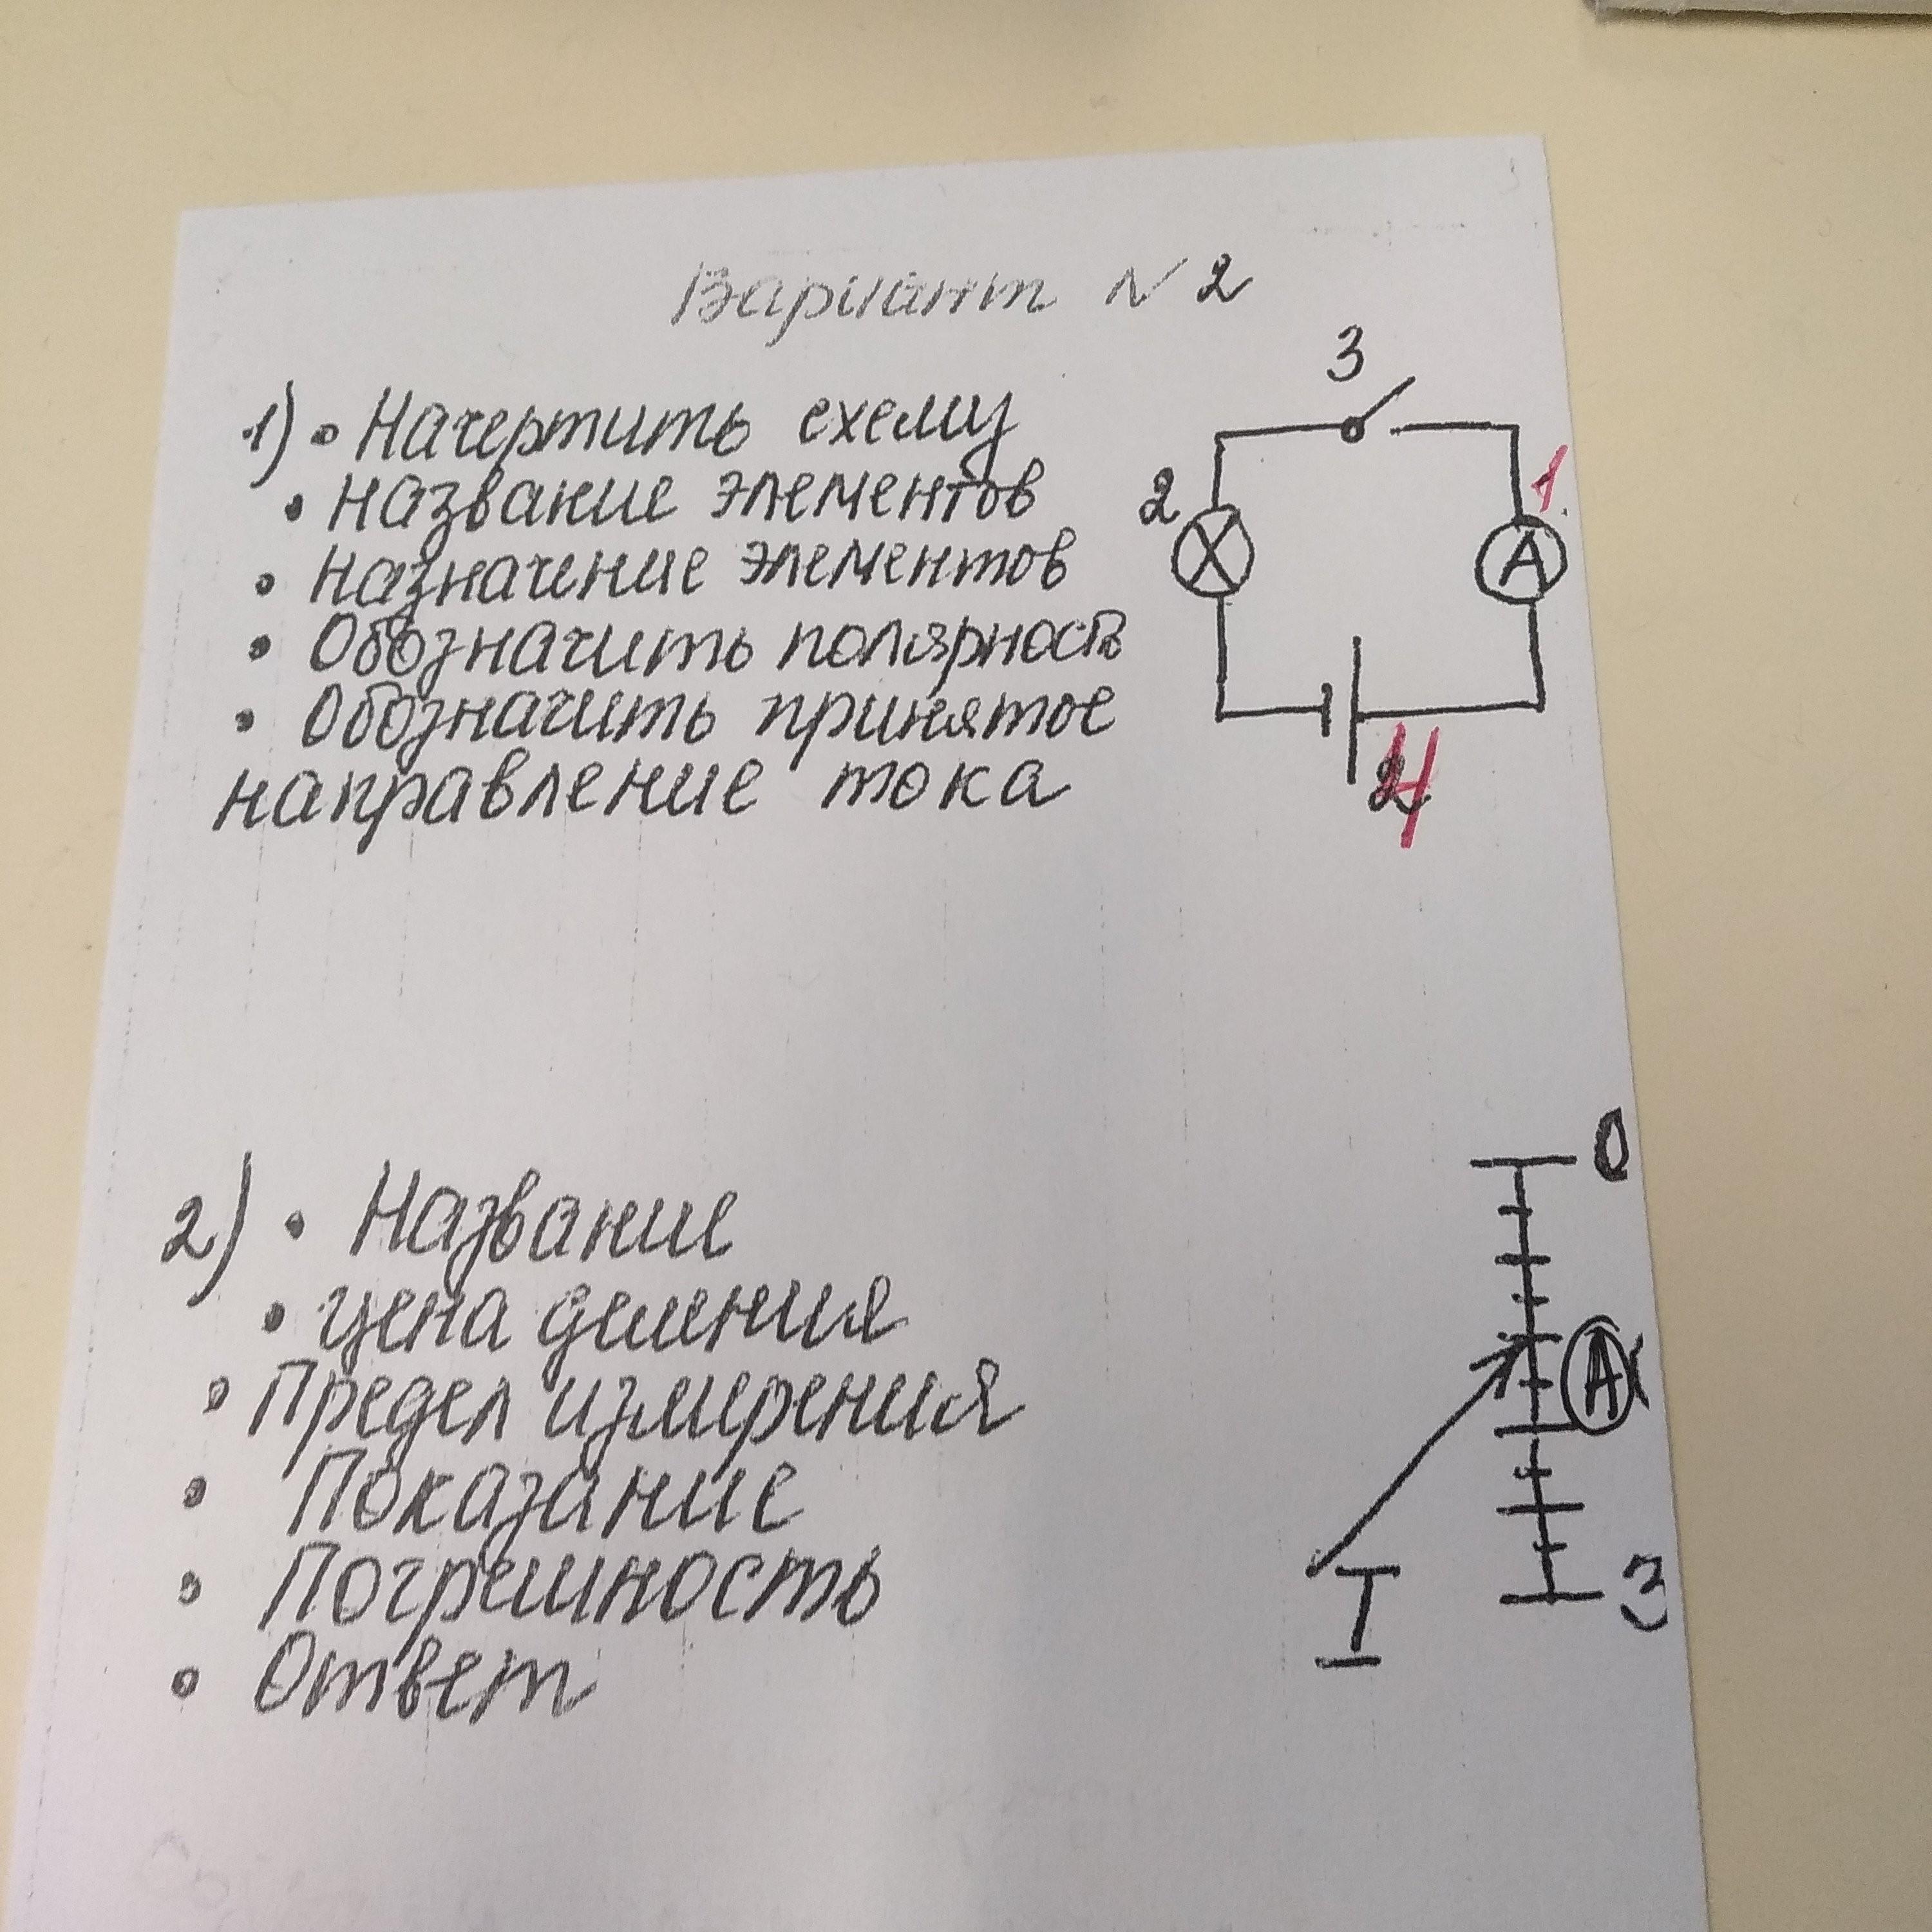 Вариант N 2
1) • Начертить схему
• название элементов
• назначение элементов
• Обозначить полярность
• Обозначить принятое
направление тока
3
2
1
А
4
2) • Название
• цена деления
• Предел измерения
• Показание
• Погрешность
• Ответ
0
А
3